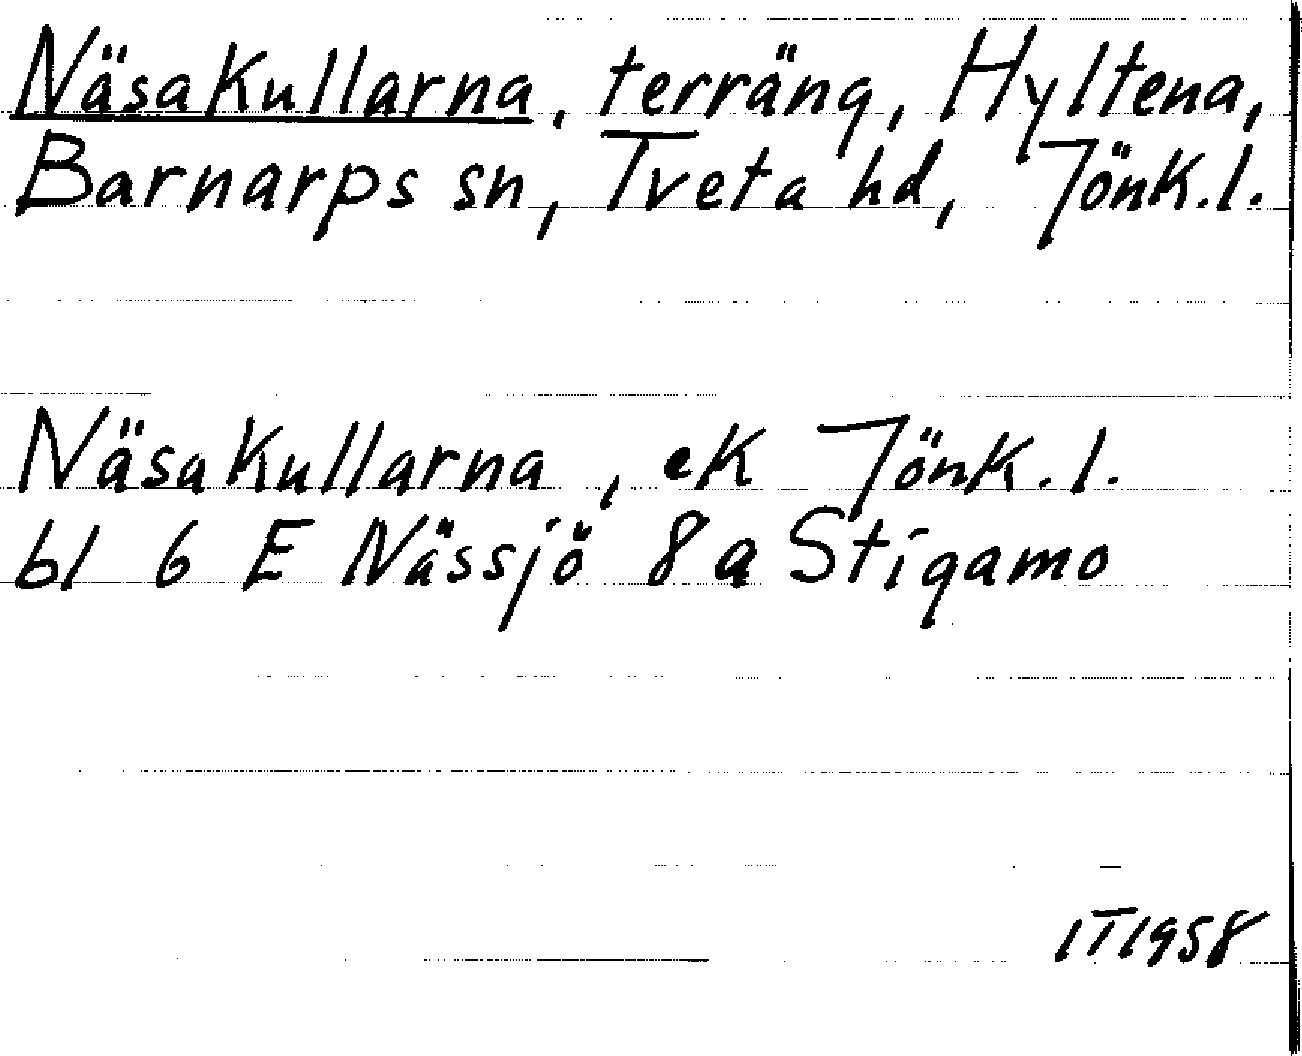 Näsakullarna, terräng, Hyltena,
Barnarps sn, Tveta hd, Jönk.l.
Näsakullarna, ek Jönk.l.
bl 6 E Nässjö 8 a Stigamo
IT 1958